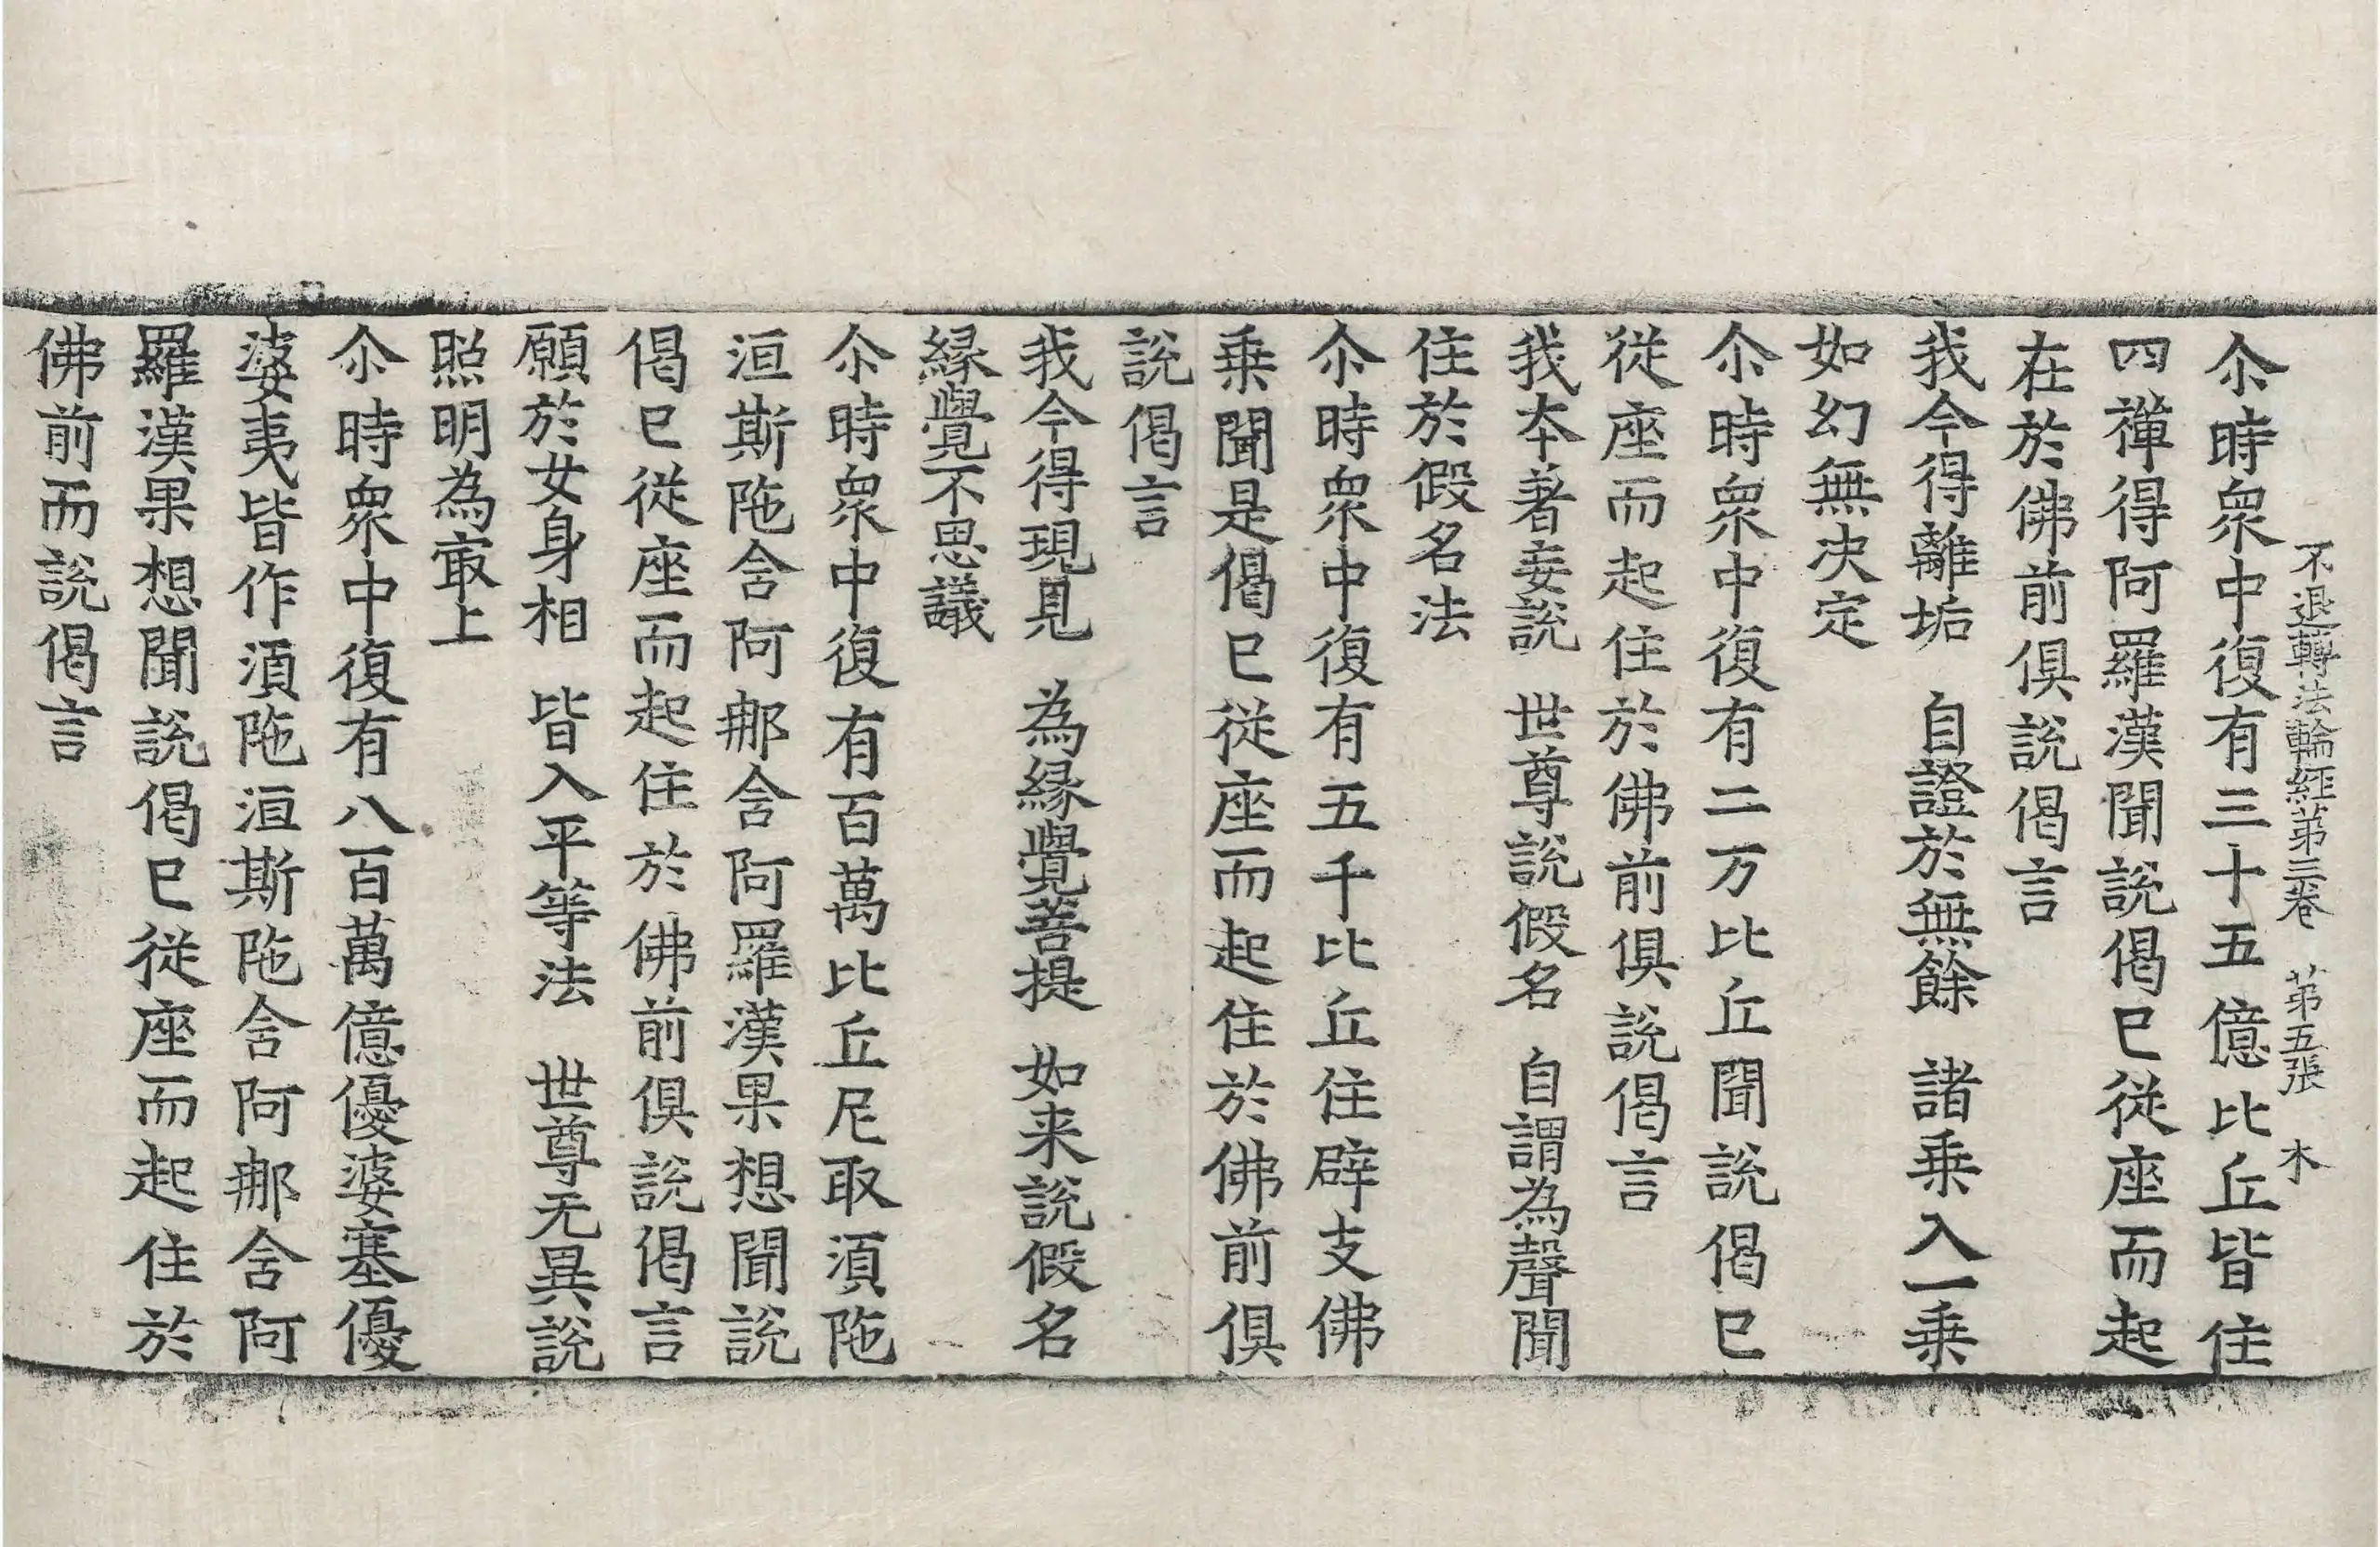 不退轉法輪經苐三卷　苐五張　木
尒時衆中復有三十五億比丘皆住
四禪得阿羅漢聞說偈已從座而起
在於佛前俱說偈言
我今得離垢　自證於無餘　諸乗入一乗
如幻無決定
尒時衆中復有二万比丘聞說偈已
從座而起住於佛前俱說偈言
我本著妄說　世尊說假名　自謂為聲聞
住於假名法
尒時衆中復有五千比丘住辟支佛
乗聞是偈已從座而起住於佛前俱
說偈言
我今得現見　為縁覺菩提　如来說假名
縁覺不思議
尒時衆中復有百萬比丘尼取湏陁
洹斯陁含阿那含阿羅漢果想聞說
偈已從座而起住於佛前俱說偈言
願於女身相　皆入平等法　世尊无異說
照明為㝡上
尒時衆中復有八百萬億優婆塞優
婆夷皆作湏陁洹斯陁含阿那含阿
羅漢果想聞說偈已從座而起住於
佛前而說偈言